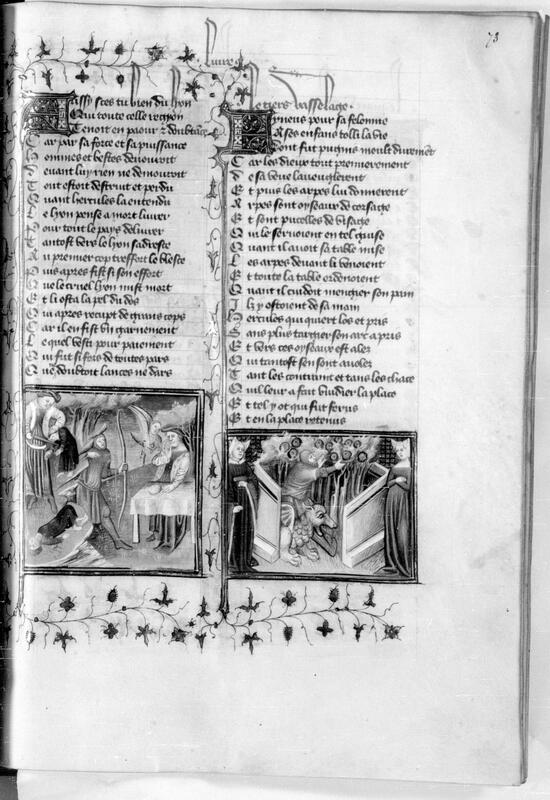 73
Livre
Assy sces tu bien du lyon
Qui toute celle region
Tenoit en paour & doubtace
Car par sa force et sa puissance
Hommes et bestes deuouroit
Deuant luy rien ne demouroit
Tout estoit destruit et perdu
Quant hercules la entendu
Le lyon pense a mort liurer
Pour tout le pays deliurer
Tantost vers le lyon sadresce
Au premier cop tresfort le blesce
Puis apres fist si son effort
Que le cruel lyon mist mort
Et li osta la pel du dos
Qui apres recupt de grans cops
Car il en fist vng garnement
Lequel vesti pour parement
Qui fut si fors de toutes pars
Que ne doubtoit lances ne dars
Le tiers vasselage
Pineus pour sa felonnie
A ses enfans tolli la vie
Dont fut pugnis moult durement
Car les dieux tout premierement
De sa veue lauueuglerent
Et puis les arpes lui donnerent
Arpes sont oyseaux de corsage
Et sont pucelles de visage
Qui le seruoient en tel guise
Quant il auoit sa table mise
Les arpes deuant li venoient
Et toute la table ordenoient
Quant il cuidoit mengier son pain
Ilz y ostoient de sa main
Hercules qui quiert los et pris
Sans plus targier son arc a pris
Et vers ces oyseaux est alez
Qui tantost sen sont auolez
Tant les contraint et tant les chace
Quil leur a fait vuidier la place
Et tel y ot qui fut ferus
Et en la place retenus